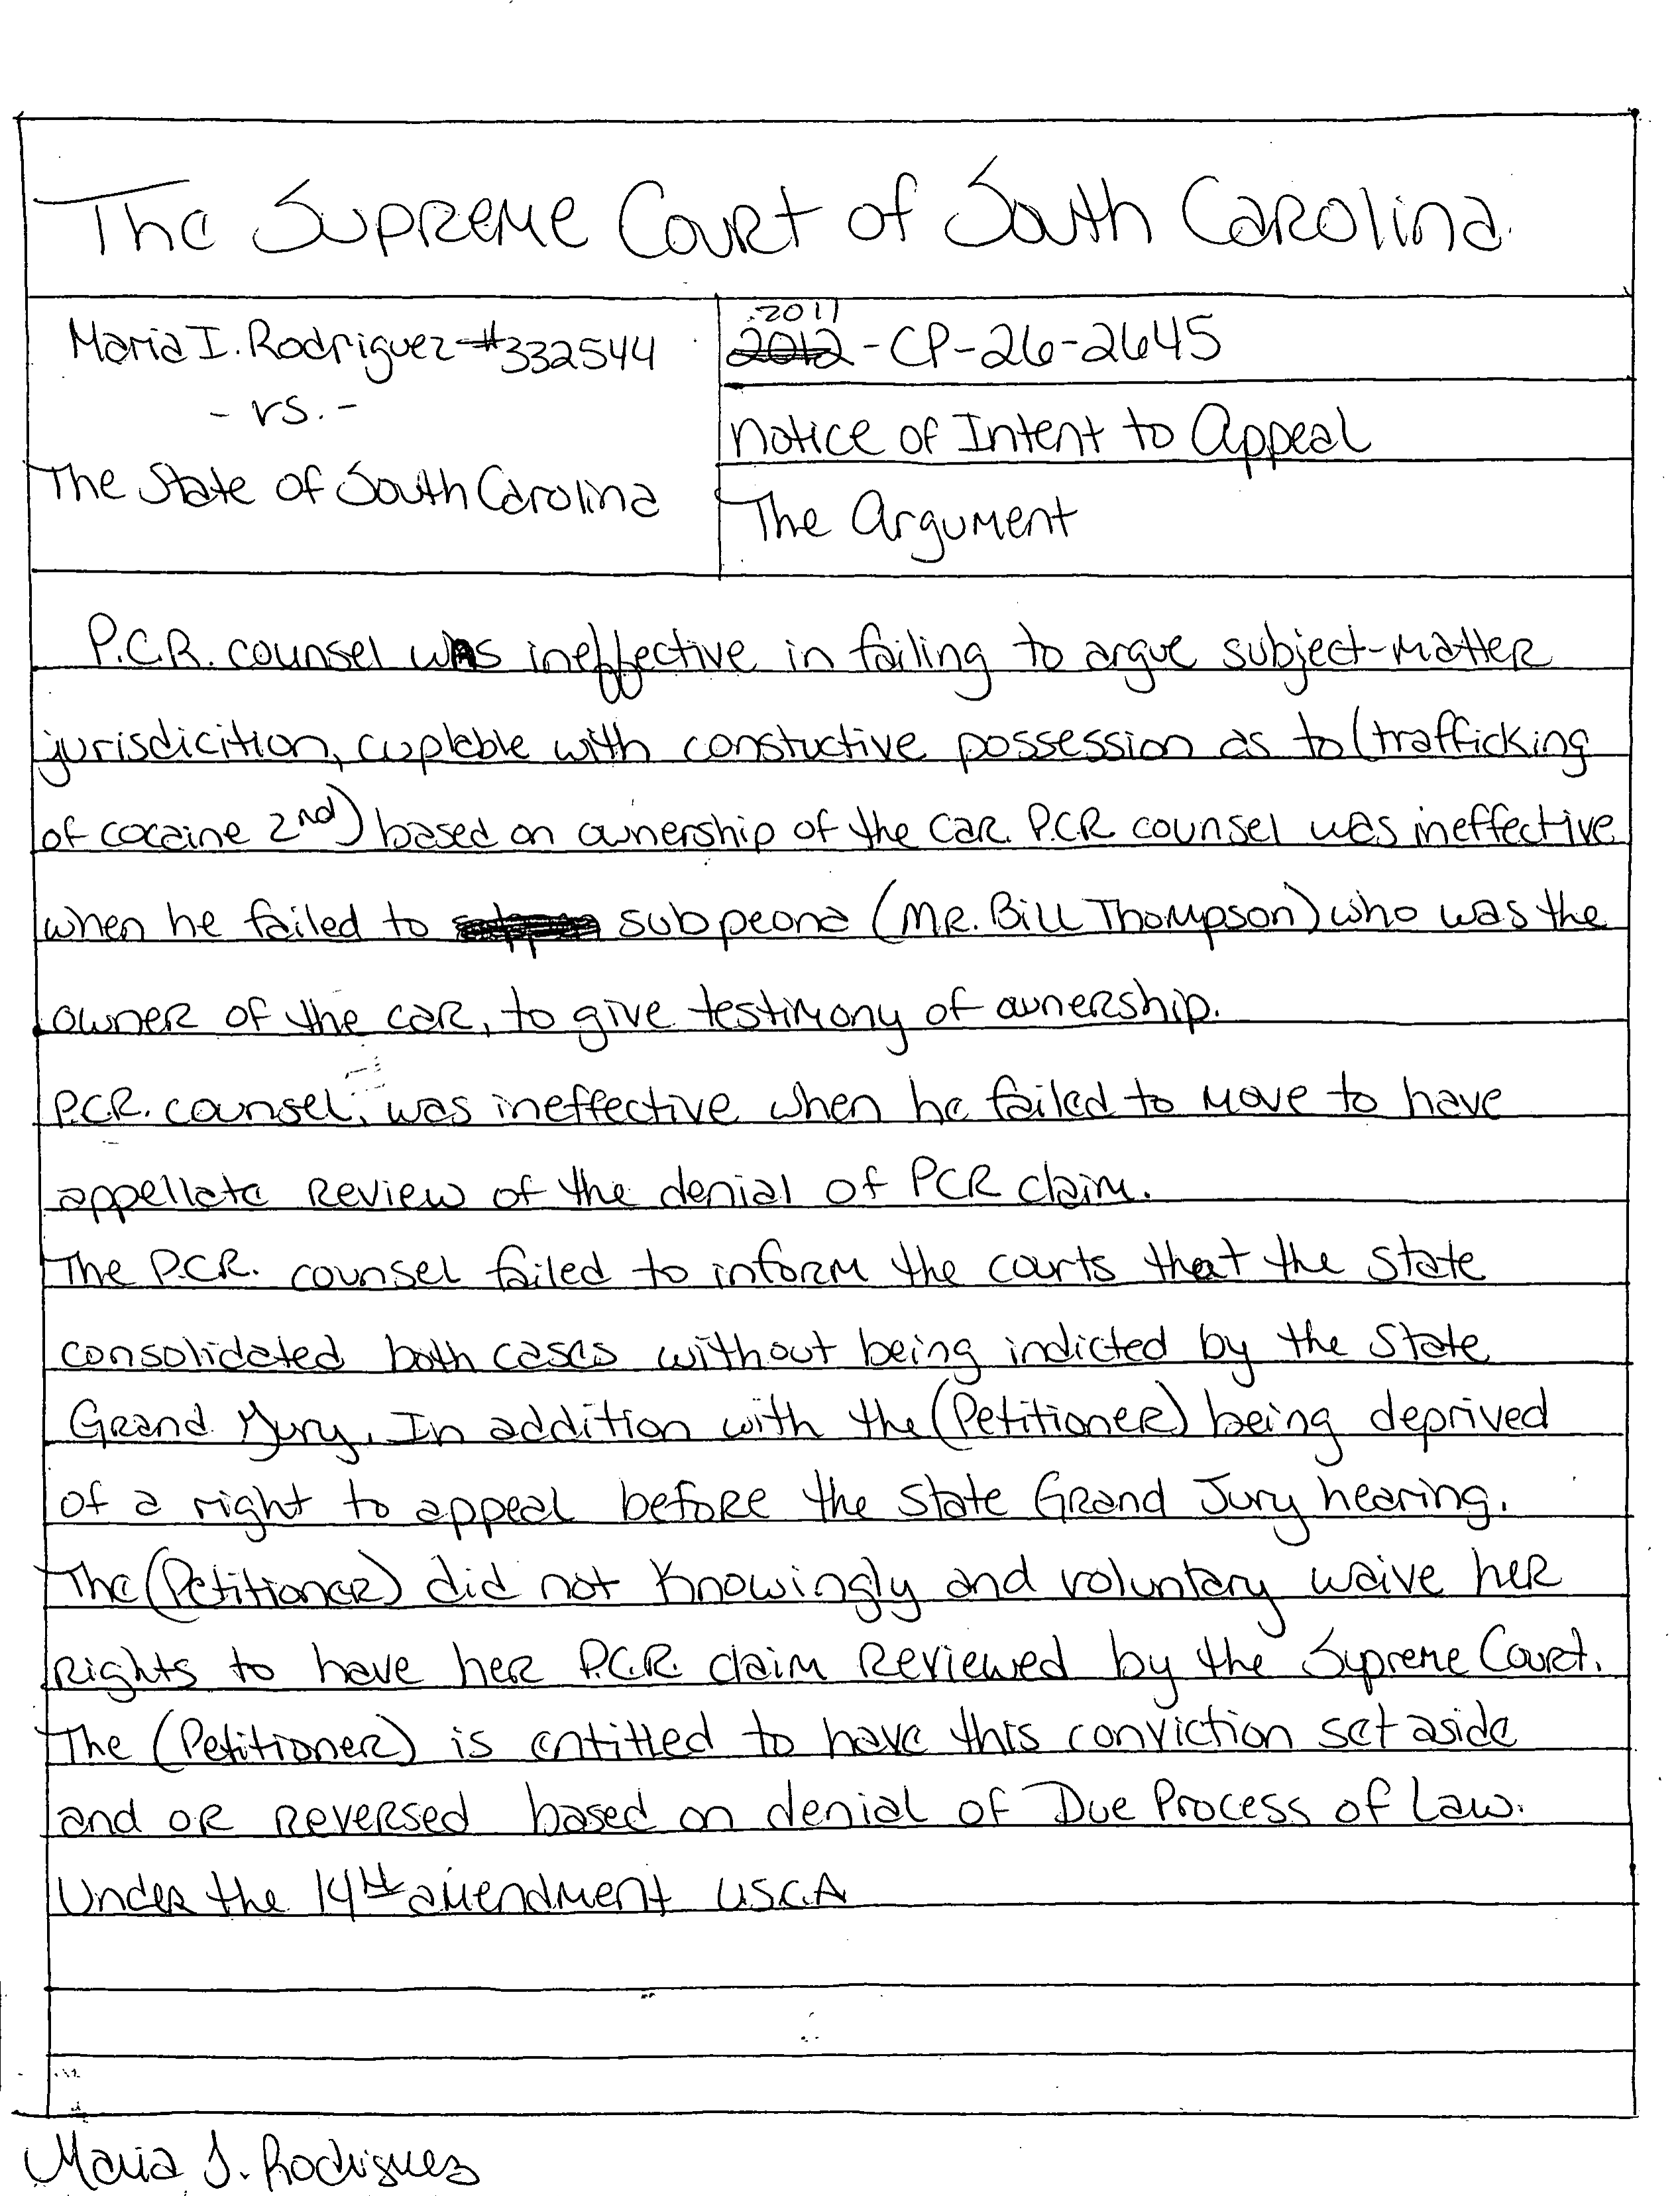 The Supreme Court of South Carolina
Maria I. Rodriguez #332544
- vs. -
The State of South Carolina
2011
2012 - CP-26-2645
Notice of Intent to Appeal
The Argument
P.C.R. counsel was ineffective in failing to argue subject-matter
jurisdicition, cuplable with constuctive possession as to (trafficking
of cocaine 2nd) based on ownership of the car. P.C.R counsel was ineffective
when he failed to subpeona (Mr. Bill Thompson) who was the
owner of the car, to give testimony of ownership.
P.C.R. counsel, was ineffective when he failed to move to have
appellate review of the denial of PCR claim.
The P.C.R. counsel failed to inform the courts that the State
consolidated both cases without being indicted by the State
Grand Jury. In addition with the (Petitioner) being deprived
of a right to appeal before the State Grand Jury hearing.
The (Petitioner) did not knowingly and voluntary waive her
rights to have her P.C.R. claim reviewed by the Supreme Court.
The (Petitioner) is entitled to have this conviction set aside
and or reversed based on denial of Due Process of Law.
Under the 14th amendment U.S.C.A
Maria I. Rodriguez